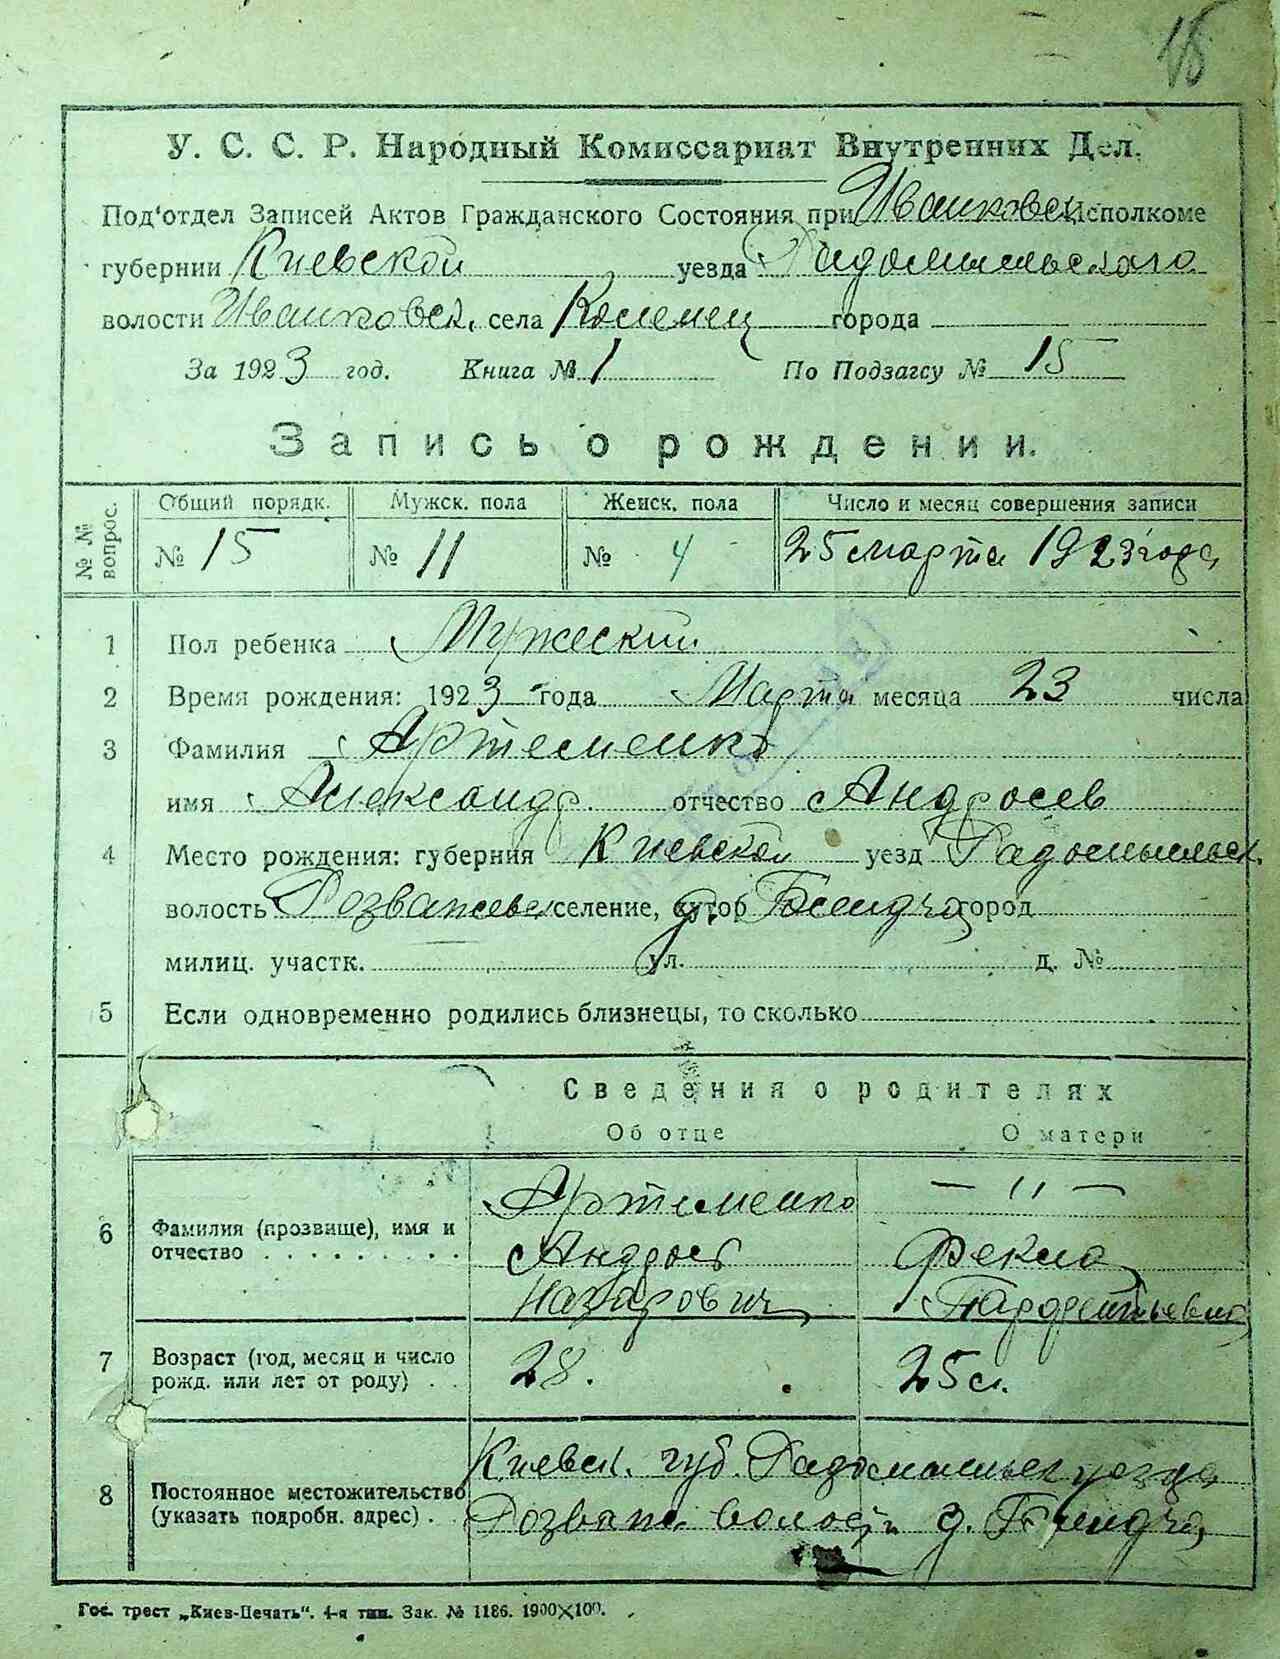 15
У. С. С. Р. Народный Комиссариат Внутренних Дел.
Под'отдел Записей Актов Гражданского Состояния при Иванковск Исполкоме
губернии Киевской уезда Радомысльского
волости Иванковск. села Коленец города
За 1923 год. Книга № 1 По Подзагсу № 15
Запись о рождении.
№№ вопрос.
Общий порядк. Мужск. пола Женск. пола Число и месяц совершения записи
№ 15 № 11 № 4 25 марта 1923 года
1 Пол ребенка Мужеский
2 Время рождения: 1923 года Марта месяца 23 числа
3 Фамилия Артеменко
имя Александр отчество Андреев
4 Место рождения: губерния Киевской уезд Радомысльск.
волость Розважевск селение, хутор д. город
милиц. участк. ул. д. №
5 Если одновременно родились близнецы, то сколько
Сведения о родителях
Об отце О матери
6 Фамилия (прозвище), имя и отчество
Артеменко — " —
Андрей Фекла
Назарович Парфентьевна
7 Возраст (год, месяц и число рожд. или лет от роду) 28. 25 л.
8 Постоянное местожительство (указать подробн. адрес)
Киевск. губ. Радомысльск уезда
Розваж. волости д.
Гос. трест „Киев-Печать“. 4-я тип. Зак. № 1186. 1900×100.